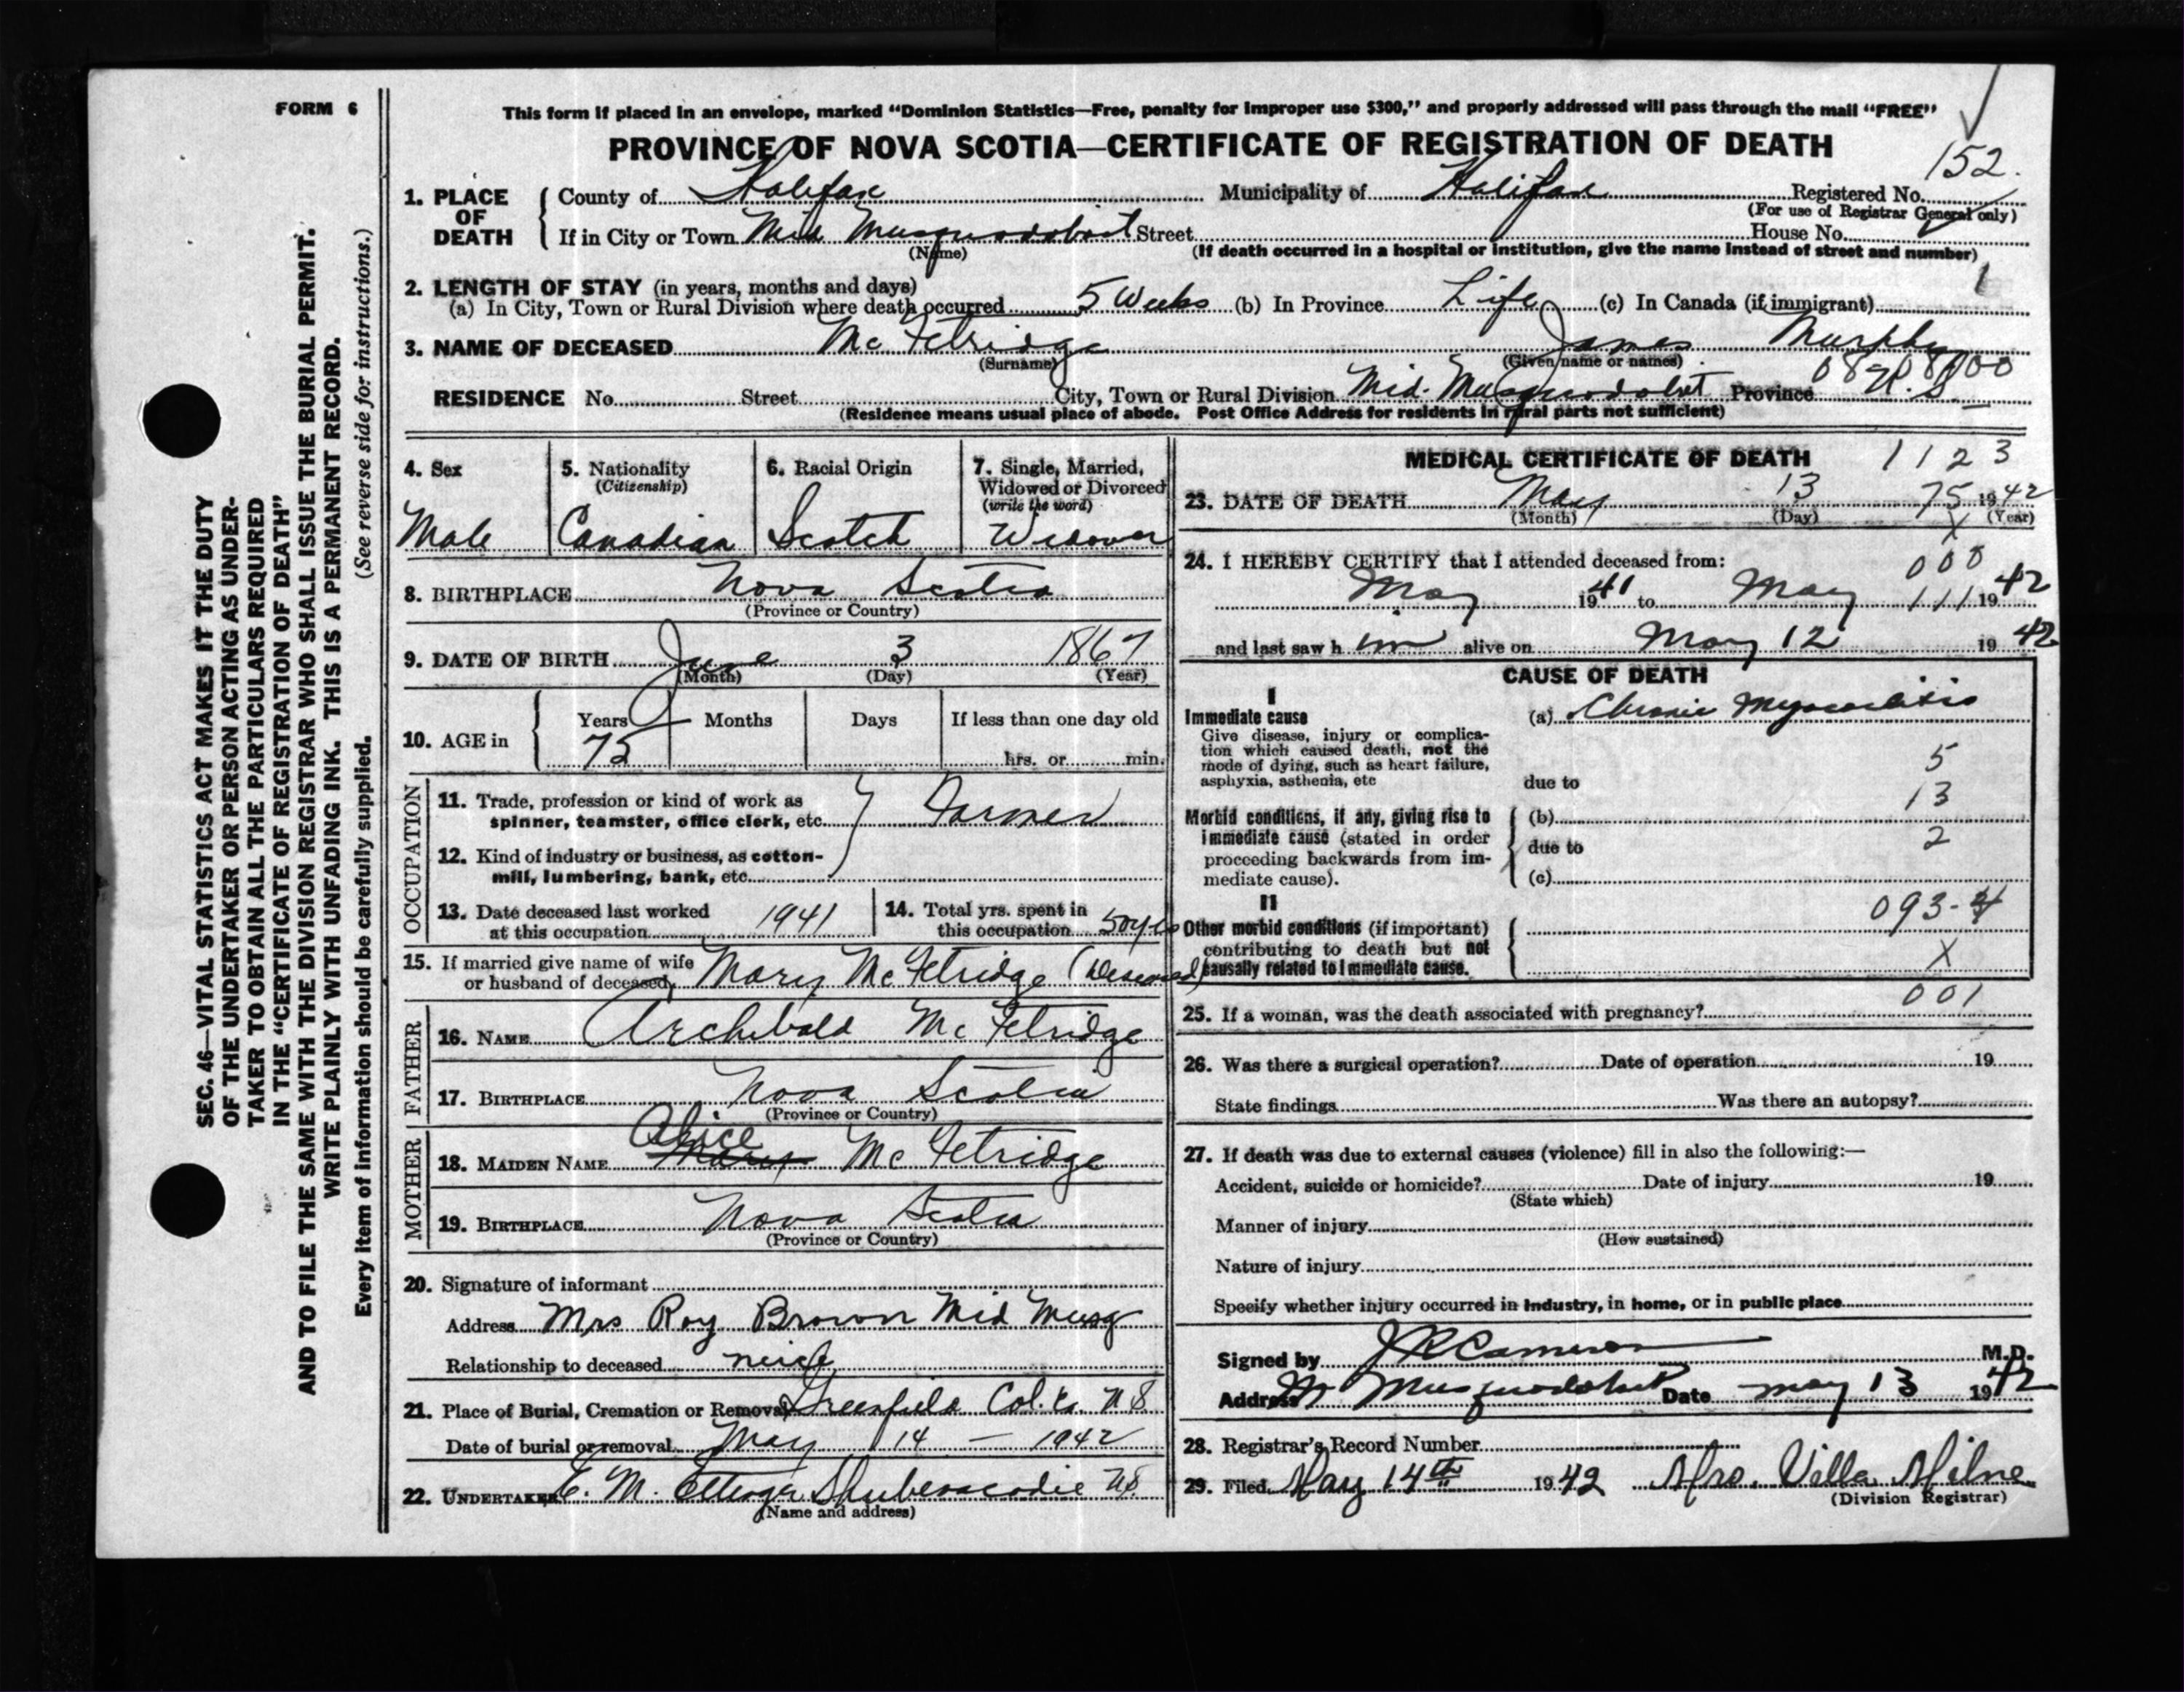 FORM 6
SEC. 46—VITAL STATISTICS ACT MAKES IT THE DUTY
OF THE UNDERTAKER OR PERSON ACTING AS UNDER-
TAKER TO OBTAIN ALL THE PARTICULARS REQUIRED
IN THE "CERTIFICATE OF REGISTRATION OF DEATH"
AND TO FILE THE SAME WITH THE DIVISION REGISTRAR WHO SHALL ISSUE THE BURIAL PERMIT.
WRITE PLAINLY WITH UNFADING INK. THIS IS A PERMANENT RECORD.
Every item of information should be carefully supplied. (See reverse side for instructions.)
This form if placed in an envelope, marked "Dominion Statistics—Free, penalty for improper use $300," and properly addressed will pass through the mail "FREE"
PROVINCE OF NOVA SCOTIA—CERTIFICATE OF REGISTRATION OF DEATH
152.
1. PLACE OF DEATH County of Halifax Municipality of Halifax Registered No.
(For use of Registrar General only)
If in City or Town Mid Musquodoboit Street House No.
(Name) (If death occurred in a hospital or institution, give the name instead of street and number)
1
2. LENGTH OF STAY (in years, months and days)
(a) In City, Town or Rural Division where death occurred 5 Weeks (b) In Province Life (c) In Canada (if immigrant)
3. NAME OF DECEASED Mc Fetridge James Murphy
(Surname) (Given name or names)
RESIDENCE No. Street City, Town or Rural Division Mid. Musquodoboit Province N.S.
(Residence means usual place of abode. Post Office Address for residents in rural parts not sufficient)
4. Sex
Male
5. Nationality
(Citizenship)
Canadian
6. Racial Origin
Scotch
7. Single, Married,
Widowed or Divorced
(write the word)
Widower
8. BIRTHPLACE Nova Scotia
(Province or Country)
9. DATE OF BIRTH June 3 1867
(Month) (Day) (Year)
10. AGE in Years Months Days If less than one day old
75 hrs. or min.
OCCUPATION
11. Trade, profession or kind of work as
spinner, teamster, office clerk, etc. Farmer
12. Kind of industry or business, as cotton-
mill, lumbering, bank, etc.
13. Date deceased last worked
at this occupation 1941
14. Total yrs. spent in
this occupation 50 yrs
15. If married give name of wife
or husband of deceased, Mary McFetridge (Deceased)
FATHER
16. NAME Archibald McFetridge
17. BIRTHPLACE Nova Scotia
(Province or Country)
MOTHER
Alice
18. MAIDEN NAME Mary McFetridge
19. BIRTHPLACE Nova Scotia
(Province or Country)
20. Signature of informant
Address Mrs Roy Brown Mid Musq
Relationship to deceased neice
21. Place of Burial, Cremation or Removal Greenfield Col. Co. N S
Date of burial or removal May 14 — 1942
22. UNDERTAKER Shubenacadie NS
(Name and address)
MEDICAL CERTIFICATE OF DEATH 1123
23. DATE OF DEATH May 13 75 1942
(Month) (Day) X (Year)
24. I HEREBY CERTIFY that I attended deceased from: 000
May 1941 to May 111 1942
and last saw h im alive on May 12 1942
CAUSE OF DEATH
I
Immediate cause
Give disease, injury or complica-
tion which caused death, not the
mode of dying, such as heart failure,
asphyxia, asthenia, etc
(a) Chronic Myocarditis
5
due to
13
Morbid conditions, if any, giving rise to
immediate cause (stated in order
proceeding backwards from im-
mediate cause).
(b)
due to 2
(c)
II
093-4
Other morbid conditions (if important)
contributing to death but not
causally related to immediate cause.
X
001
25. If a woman, was the death associated with pregnancy?
26. Was there a surgical operation? Date of operation 19
State findings Was there an autopsy?
27. If death was due to external causes (violence) fill in also the following:—
Accident, suicide or homicide? Date of injury 19
(State which)
Manner of injury
(How sustained)
Nature of injury
Specify whether injury occurred in industry, in home, or in public place
Signed by J R Cameron M.D.
Address M Musquodoboit Date May 13 1942
28. Registrar's Record Number
29. Filed May 14th 1942 Mrs. Villa Milne
(Division Registrar)